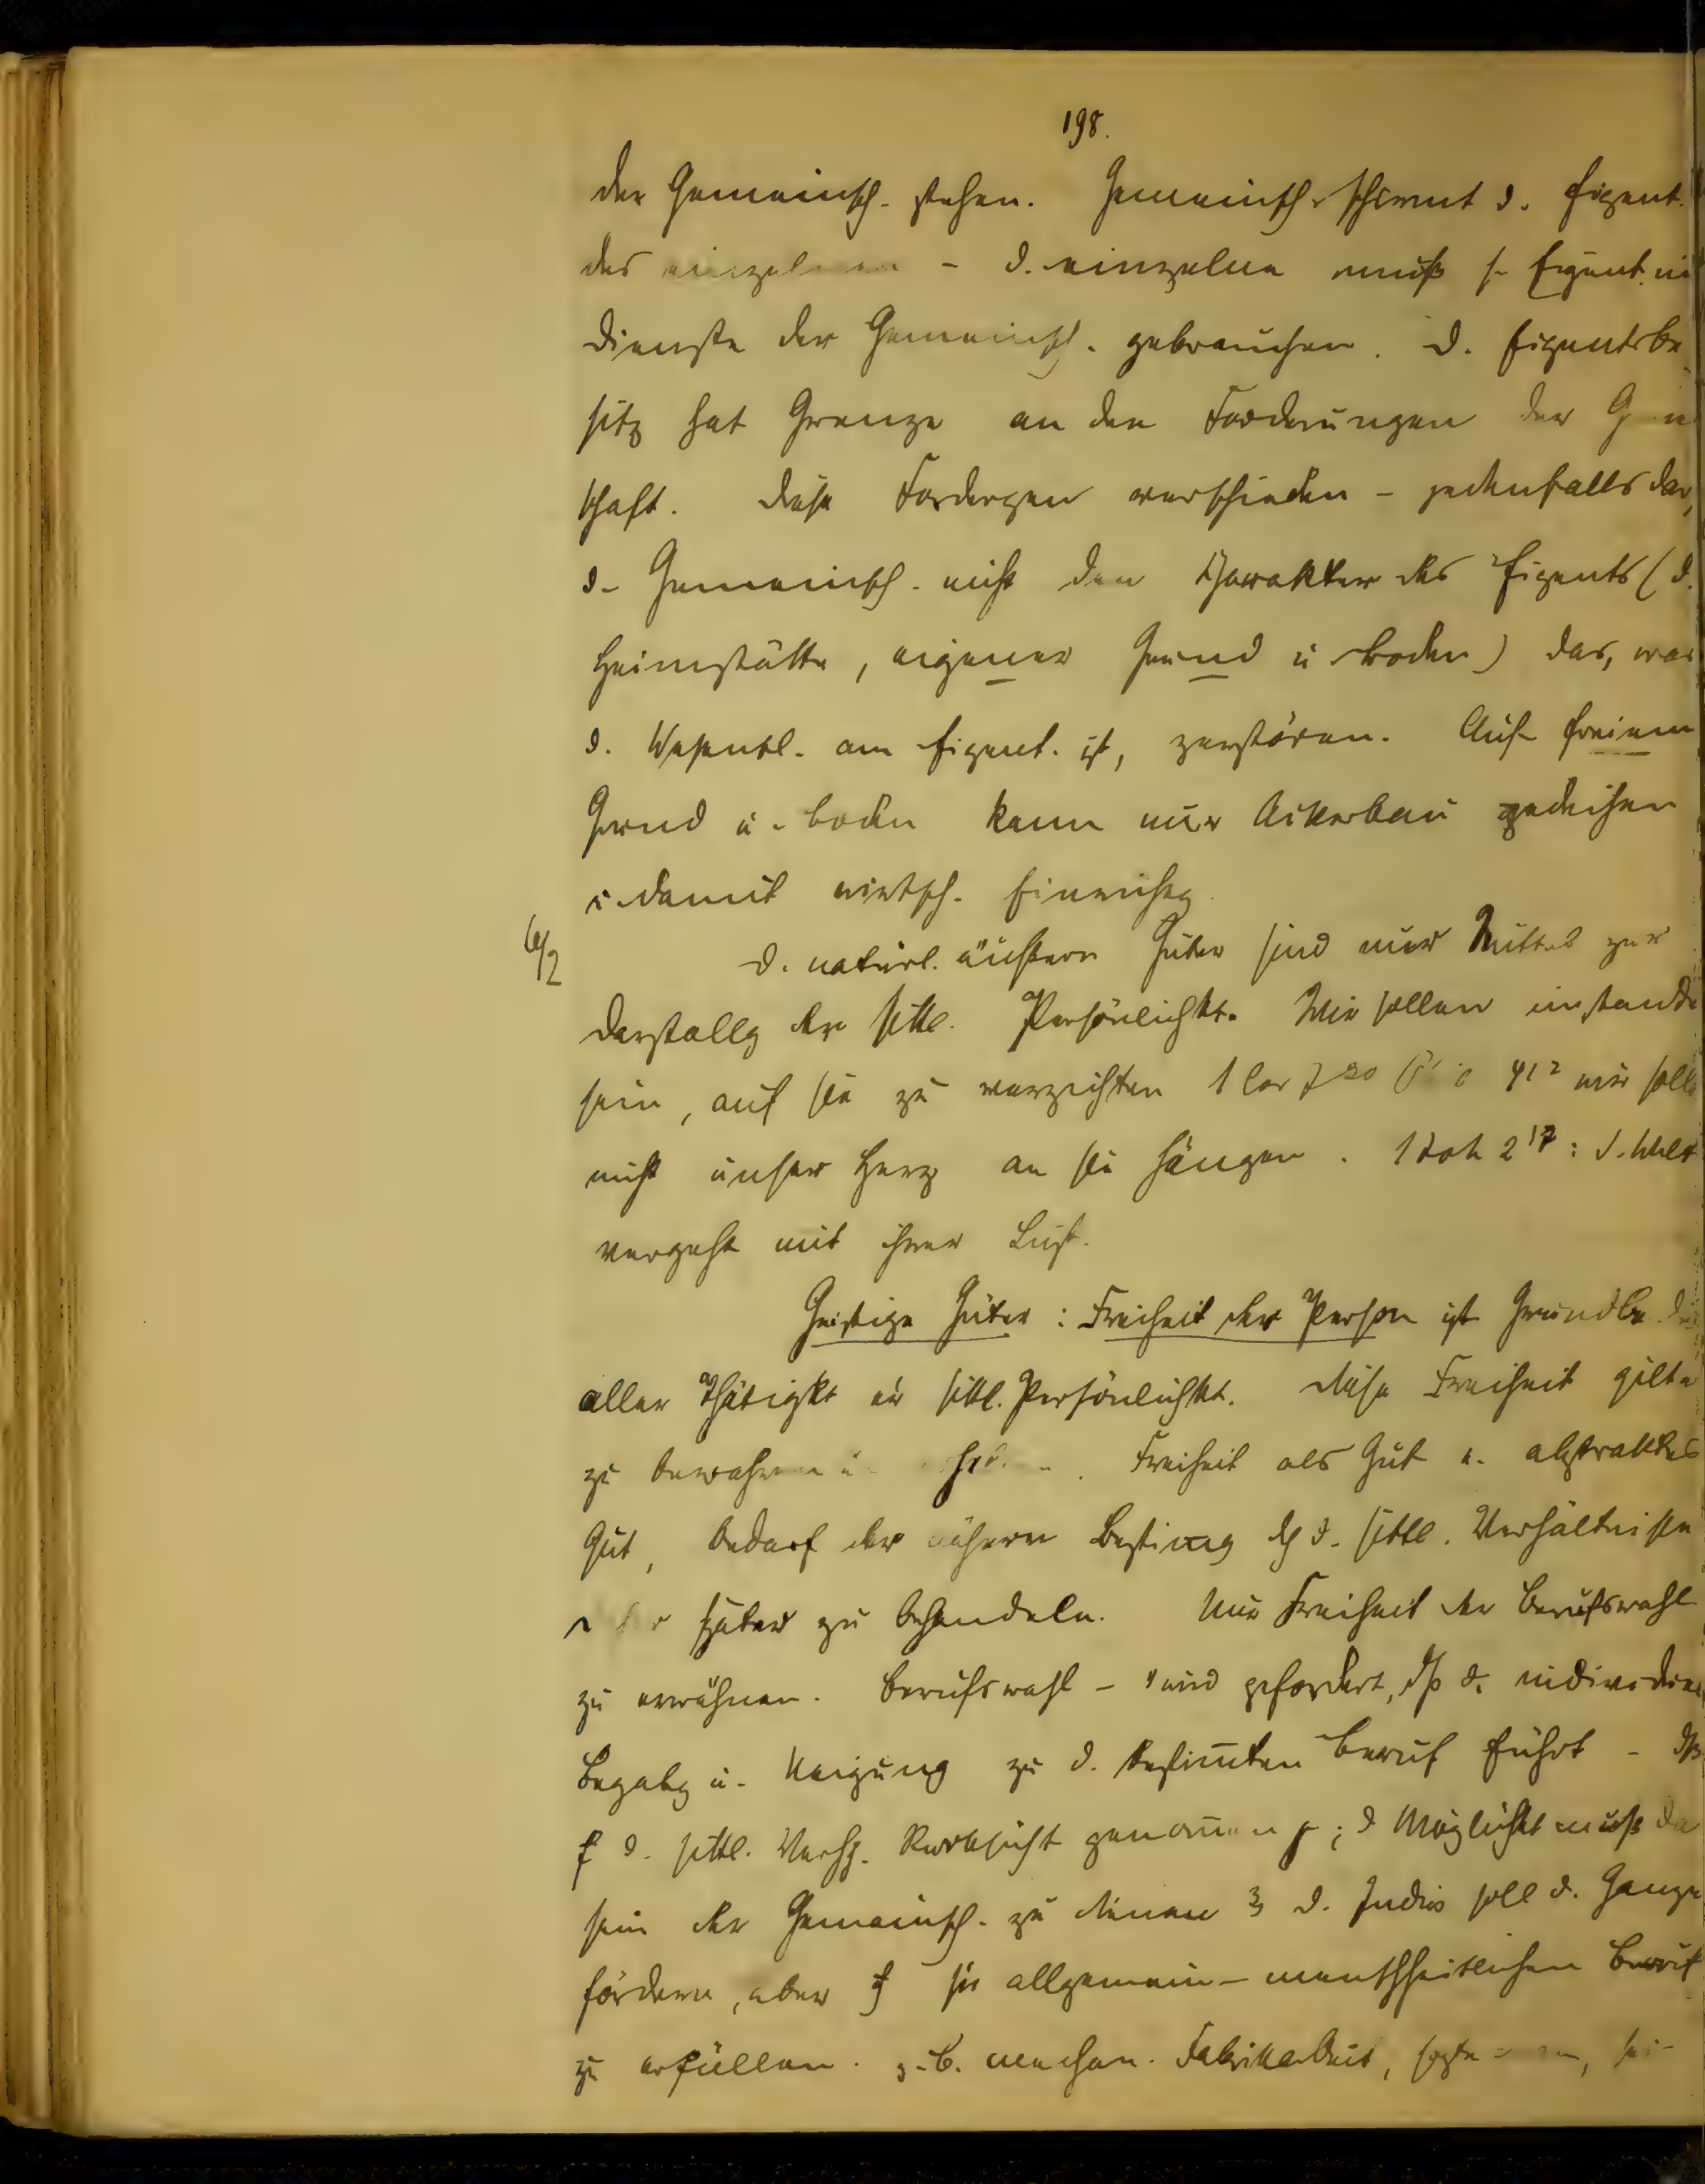 198.
der Gemeinsch. stehen. Gemeinsch. schirmt d. Eigent.
des einzelnen - d. einzelne muß s. Eigent. im
Dienste der Gemeinsch. gebrauchen. D. Eigentsbe
sitz hat Grenze an den Forderungen der
schaft. Diese Fordergen verschieden - jedenfalls darf
d. Gemeinsch. nicht den Charakter des Eigents (d.
Heimstätte, eigener Grund u. Boden) das, was
d. Wesentl. am Eigent. ist, zerstören. Auf freiem
Grund u. Boden kann nur Ackerbau gedeihen
u. damit wirtsch. Einrichtg.
6/2
D. natürl. äußern Güter sind nur Mittel zur
Darstellg der sittl. Persönlichkt. Wir sollen imstande
sein, auf sie zu verzichten 1 Cor 7 30 4 12 wir sollen
nicht unser Herz an sie hängen. 1 Joh 2 17: d. Welt
vergeht mit ihrer Lust.
Geistige Güter: Freiheit der Person ist Grundbe
aller Thätigkt er sittl. Persönlichkt. Diese Freiheit gilt
zu bewahren Freiheit als Gut e. abstraktes
Gut, bedarf der nähern Bestimg dch d. sittl. Verhältnisse
später zu behandeln. Nur Freiheit der Berufswahl
zu erwähnen. Berufswahl - wird gefordert, dß d. individuelle
Begabg u. Neigung zu d. bestimten Beruf führt - dß
f d. sittl. Rücksicht genommen ; d Möglichkt muß da
sein der Gemeinsch. zu dienen d. Indiv soll d. Ganze
fördern, aber allgemein-menschheitlichen Beruf
zu erfüllen. z.B. mechan. Fabrikarbeit,